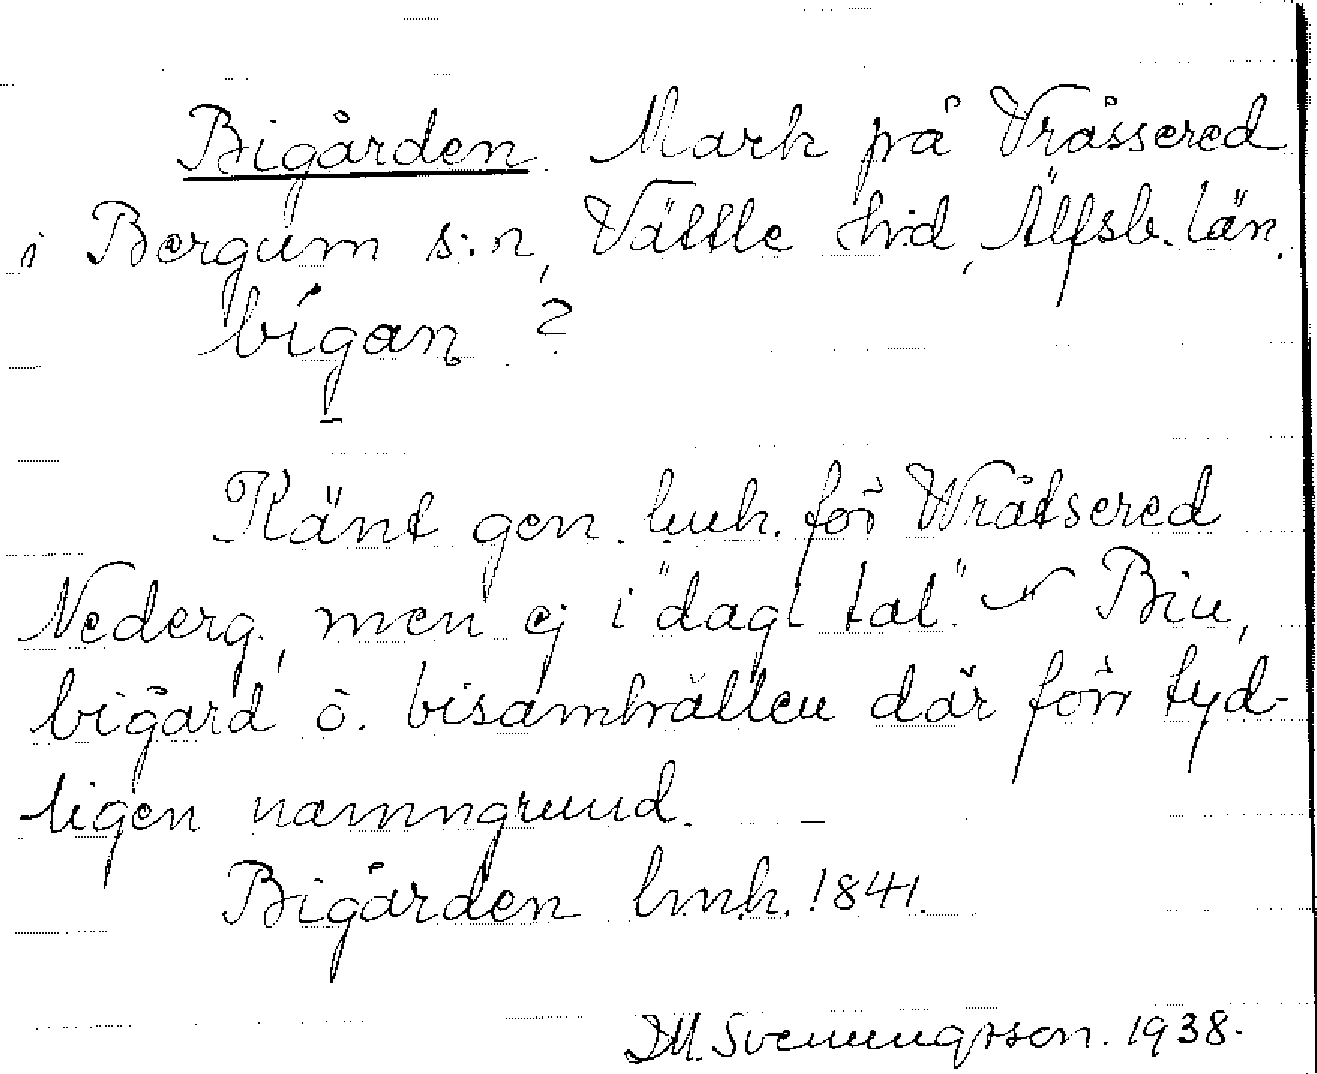 Bigården Mark på Vråssered
i Bergum s:n, Vättle hrd, Älfsb. län.
bigaṇ ?
Känt gen. lmk. för Vråtsered
Nederg., men ej i "dagl tal". Biu,
bigård o. bisamhällen där förr tyd-
ligen namngrund. –
Bigården lmk. 1841.
DM. Svenungsson. 1938.